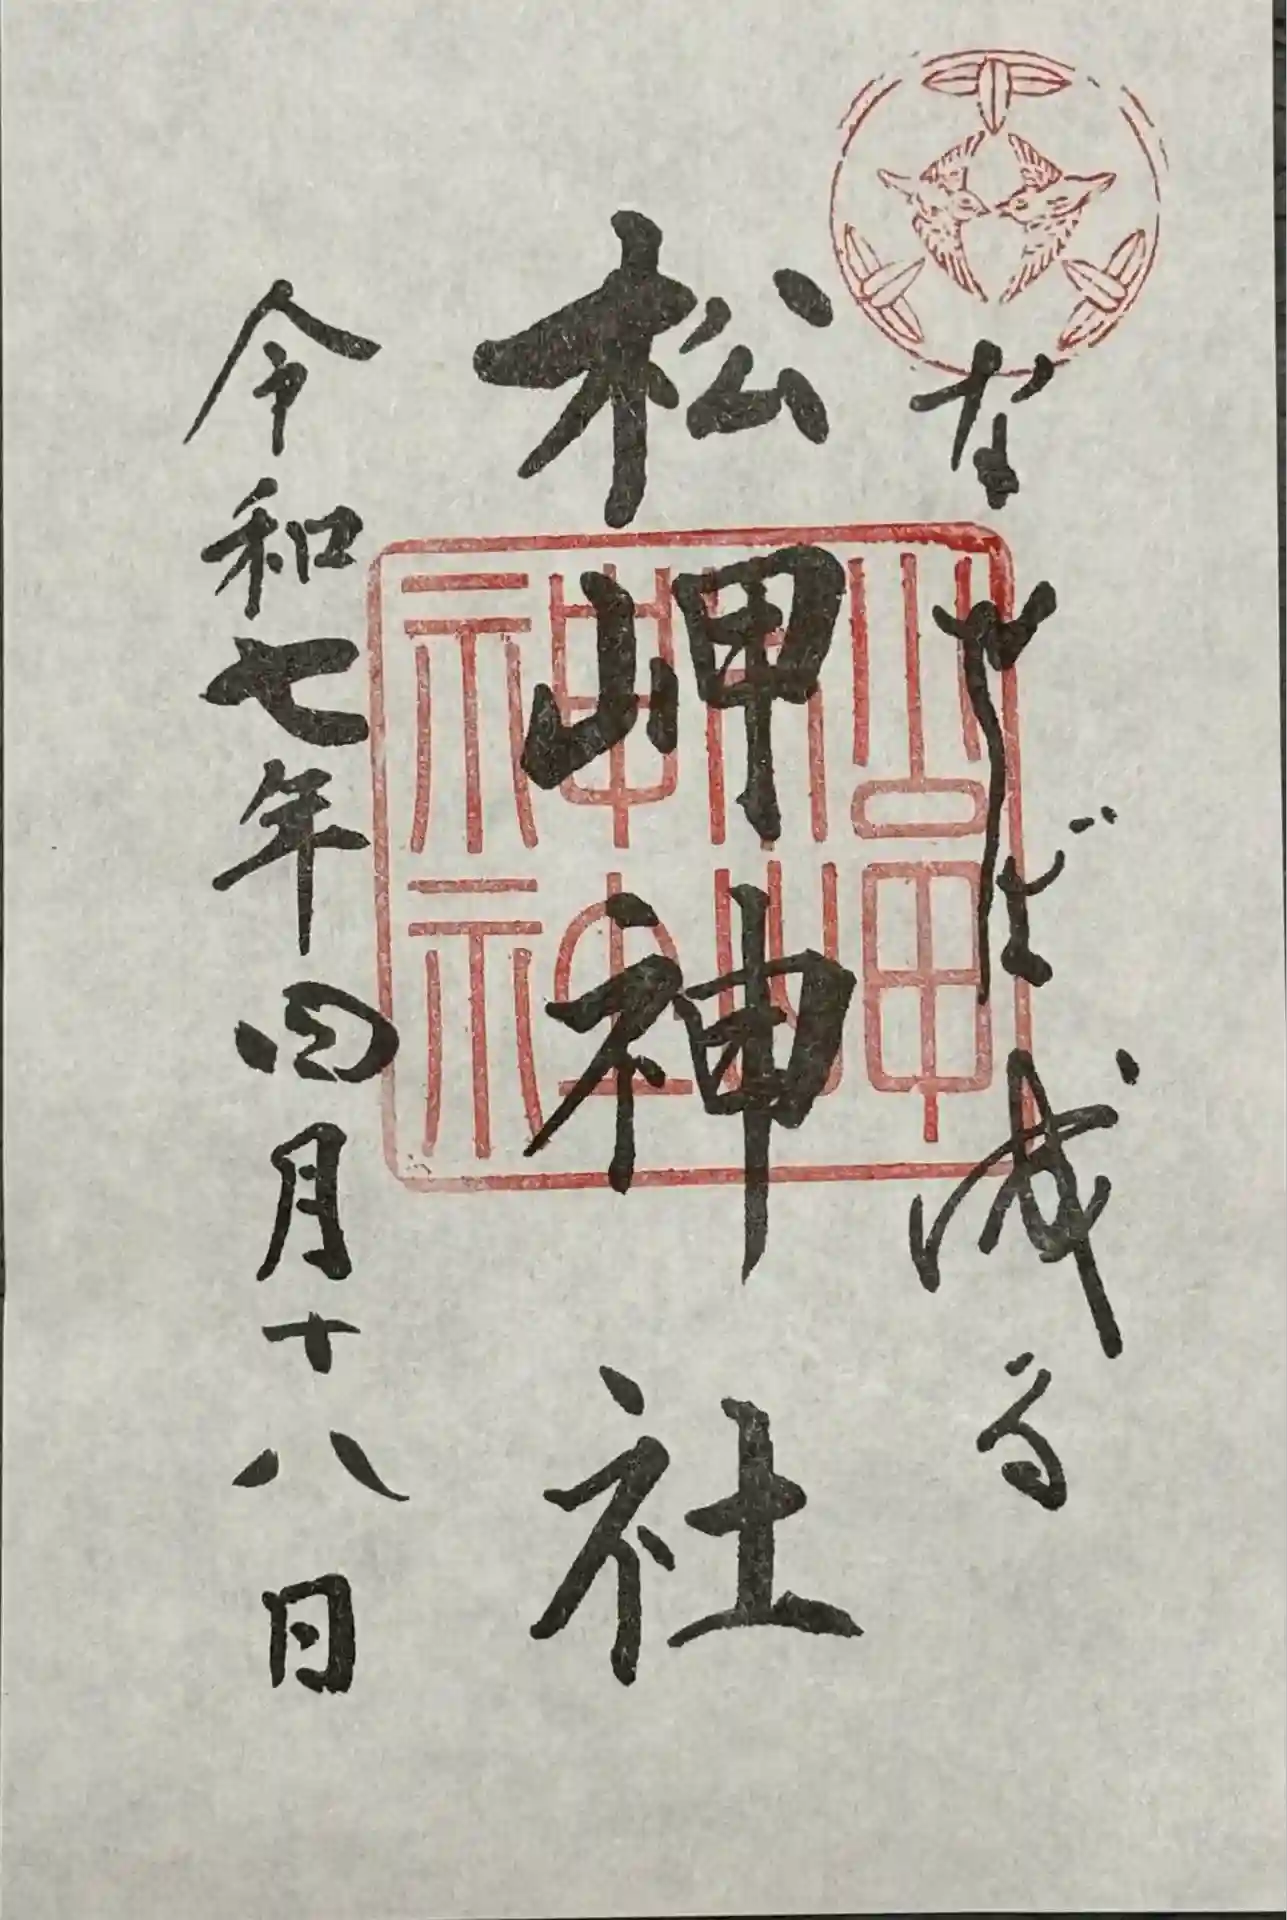 なせば成る
松岬神社
令和七年四月十八日
松岬
神社